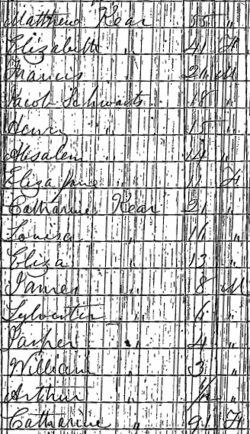 Matthew Kear 55 "
Elizabeth " 41 F
Francis " 21 M
Jacob Schwartz 18 "
Henry " 15 "
Absalem " 14 "
Eliza Jane " 11 F
Catharine Kear 21 "
Louisa " 16 "
Eliza " 13 "
James " 8 M
Sylvester " 6 "
Jasher " 4 "
William " 3 "
Arthur " "
Catharine " F